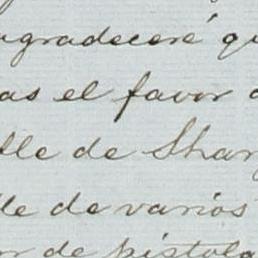 agradeceré qu
as el favor d
lle de Shar
le de varios
r de pistola